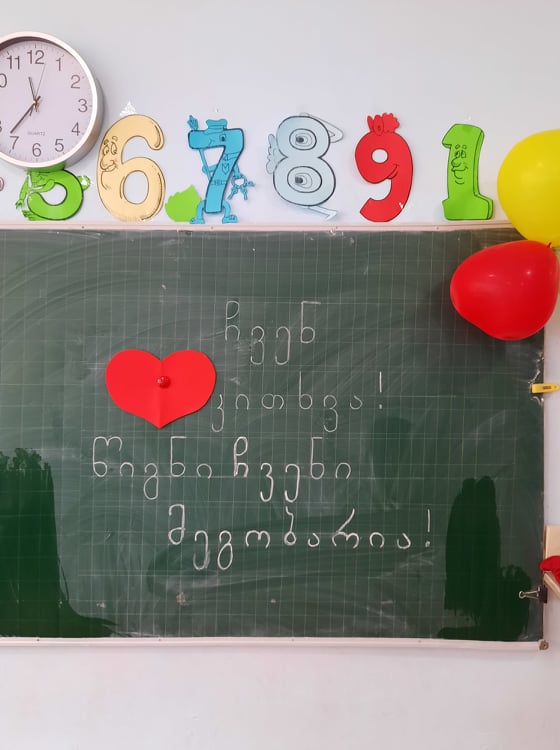 12
11 1
2
3
4
7 6 5
QUARTZ
5 6 7 8 9 1
ჩვენ
კითხვა!
წიგნი ჩვენი
მეგობარია!